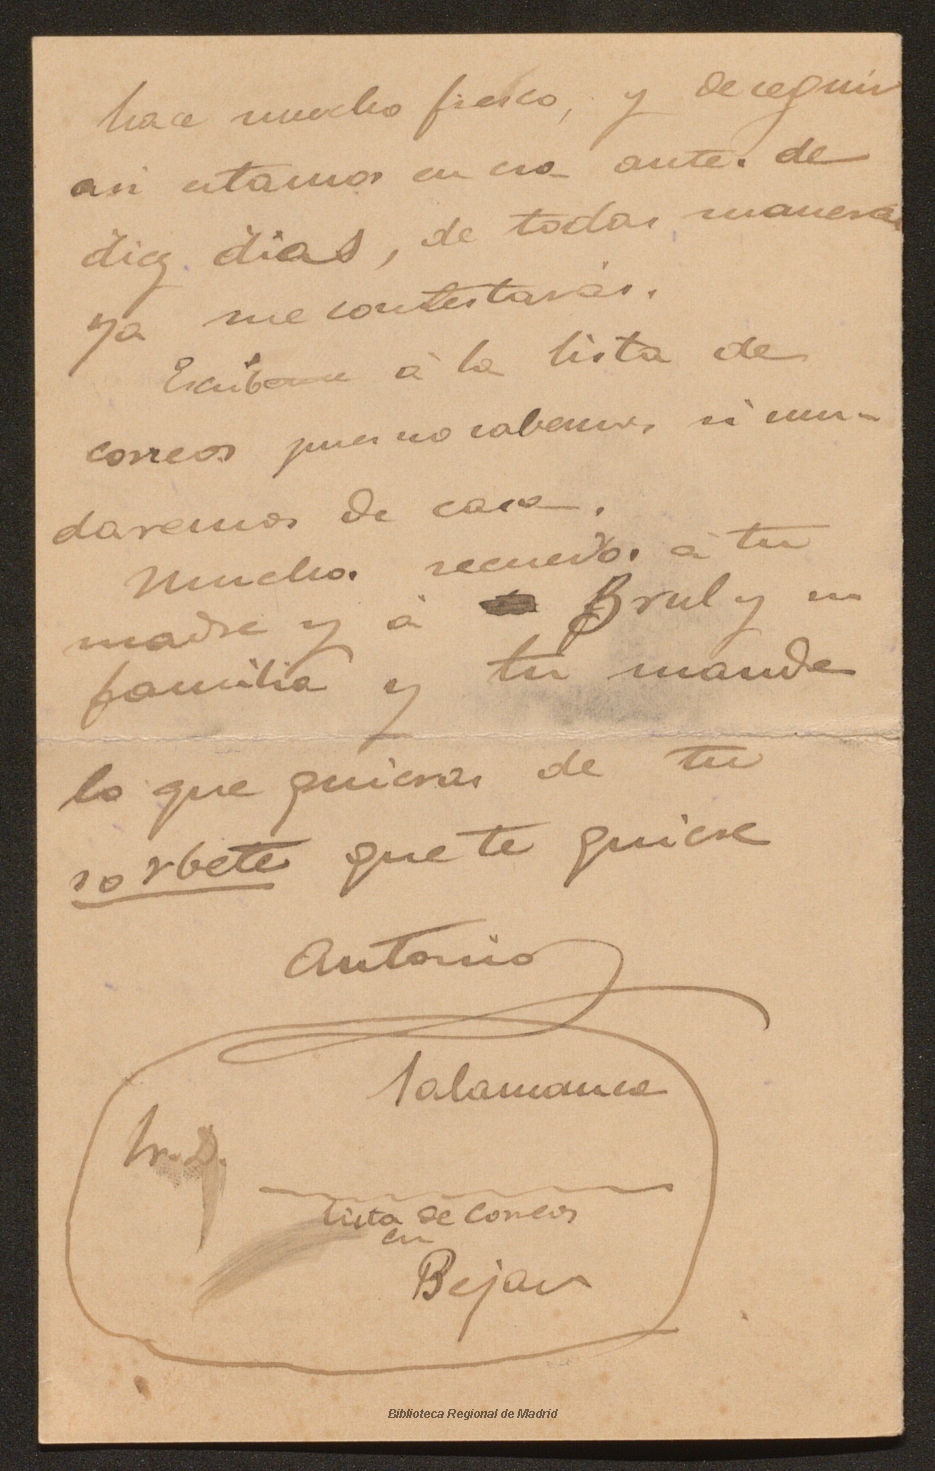 hace mucho fresco, y de seguir
asi estamos en esa antes de
diez dias, de todas maneras
ya me contestarás.
Escribeme á la lista de
correos pues no sabemos si mu-
daremos de casa.
Muchos recuerdos á tu
madre y á Brul y su
familia y tu manda
lo que quieras de tu
sorbete que te quiere
Antonio
Salamanca
Sr. D.
Lista de Correos
en
Bejar
Biblioteca Regional de Madrid